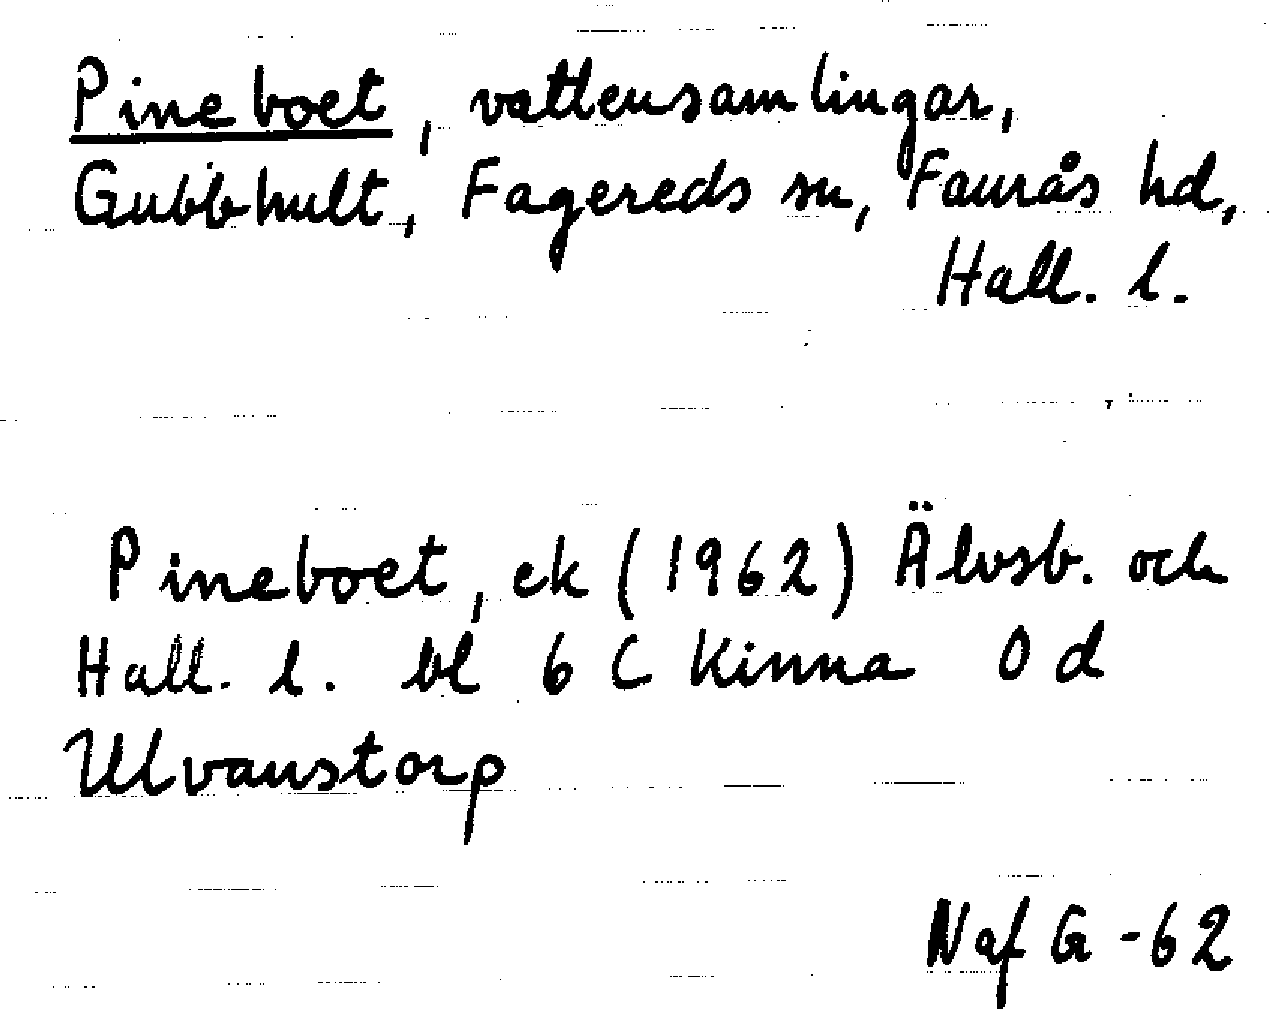 Pineboet, vattensamlingar,
Gubbhult, Fagereds sn, Faurås hd,
Hall. l.
Pineboet, ek (1962) Älvsb. och
Hall. l. bl 6 C Kinna 0 d
Ulvanstorp
Naf G -62